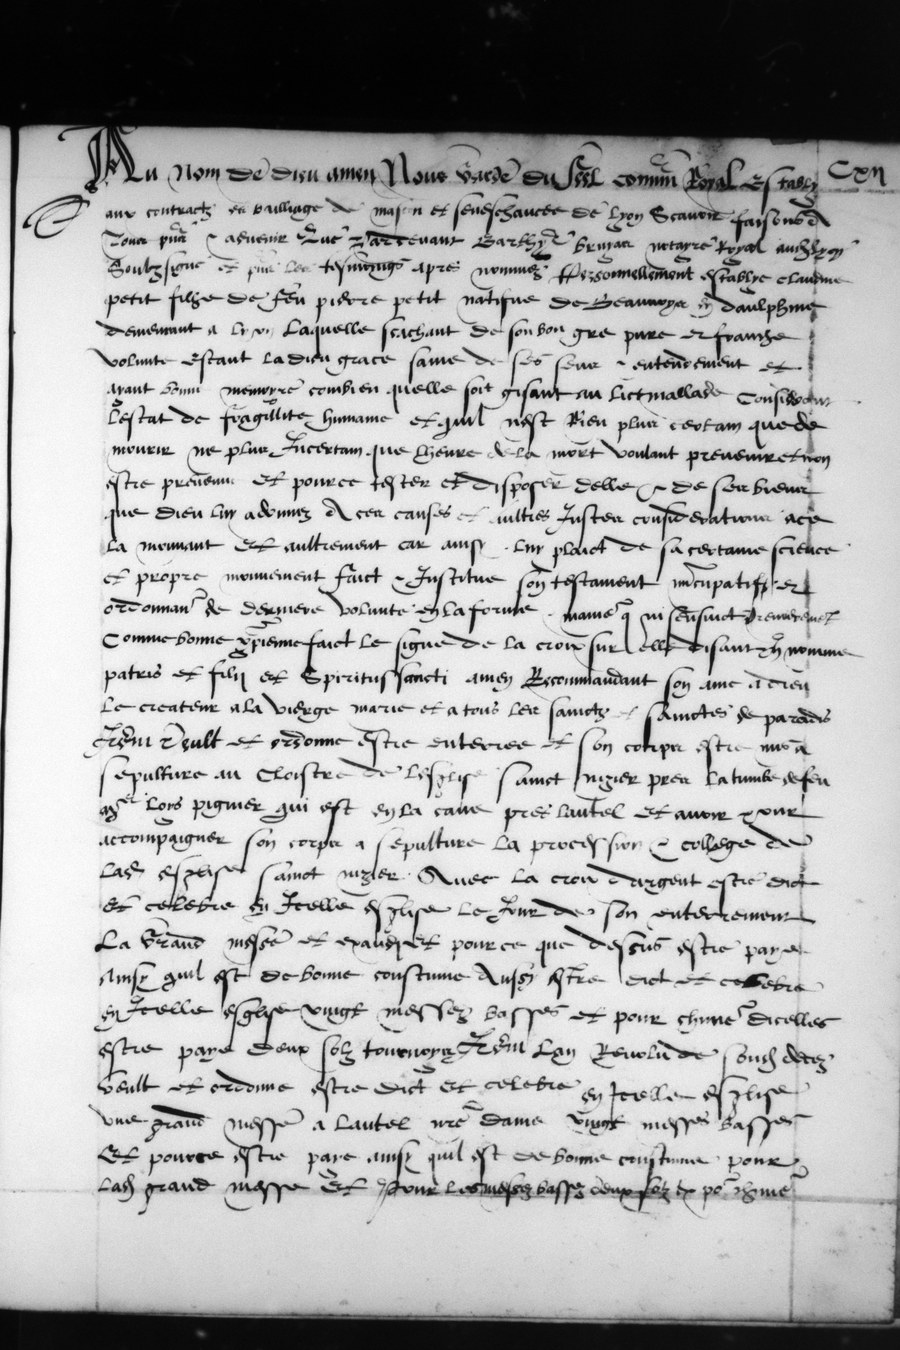 CXII
Au nom de dieu amen Nous garde du seel commun Royal estably
aux contractz es bailliage de mascon et seneschaucee de lyon Scavoir faisons a
Tous pns & advenir que pardevant Barthy bruyas notayre Royal
Soubzsigne et pns les tesmoings apres nommez Personnellement establye claudine
petit filhe de feu pierre petit natifve de Beauvoyr en daulphine
demeurant a lyon Laquelle sachant de son bon gre pure et franche
volunte estant la dieu grace saine de ses sens & entendement et
ayant bonne memoyre combien quelle soit gisant au lict mallade Considerant
lestat de fragillite humaine et quil nest Rien plus certain que de
mourir ne plus Incertain que lheure de la mort voulant prevenir et non
estre prevenue et pource tester et disposer delle & de ses biens
que dieu luy a donnez A ces causes et aultres Justes considerations a ce
la mouvant et aultrement car ainsi luy plaict de sa certaine science
et propre mouvement faict & Institue son testament nuncupatif et
ordonnance de derniere volunte en la forme maniere qui sensuict Premierement
Comme bonne xpienne faict le signe de la croix sur elle disant In nomine
patris et filii et Spiritus sancti amen Recommandant son ame a dieu
le createur a la vierge marie et a tous les sainctz et sainctes de paradis
Item veult et ordonne estre enterree et son corps estre mis a
sepulture au Cloistre de leglise sainct nizier pres la tumbe de feu
loys pignier qui est en la cave pres lautel et avoir pour
accompaigner son corps a sepulture la procession & college de
lad esglise sainct nizier Avec la croix dargent estre dict
et celebre en Icelle esglise le Jour de son enterrement
La grand messe et pour ce que dessus estre paye
ainsy quil est de bonne coustume Aussy estre dict et celebre
en Icelle esglise vingt messes basses et pour chune dicelles
estre paye deux solz tournoys Item Lan Revolu de sond deces
veult et ordonne estre dict et celebre en Icelle esglise
une grand messe a lautel nre dame vingt messes basses
et pource estre paye ainsy quil est de bonne coustume pour
lad grand messe et pour les messes basses deux solz tz por chune